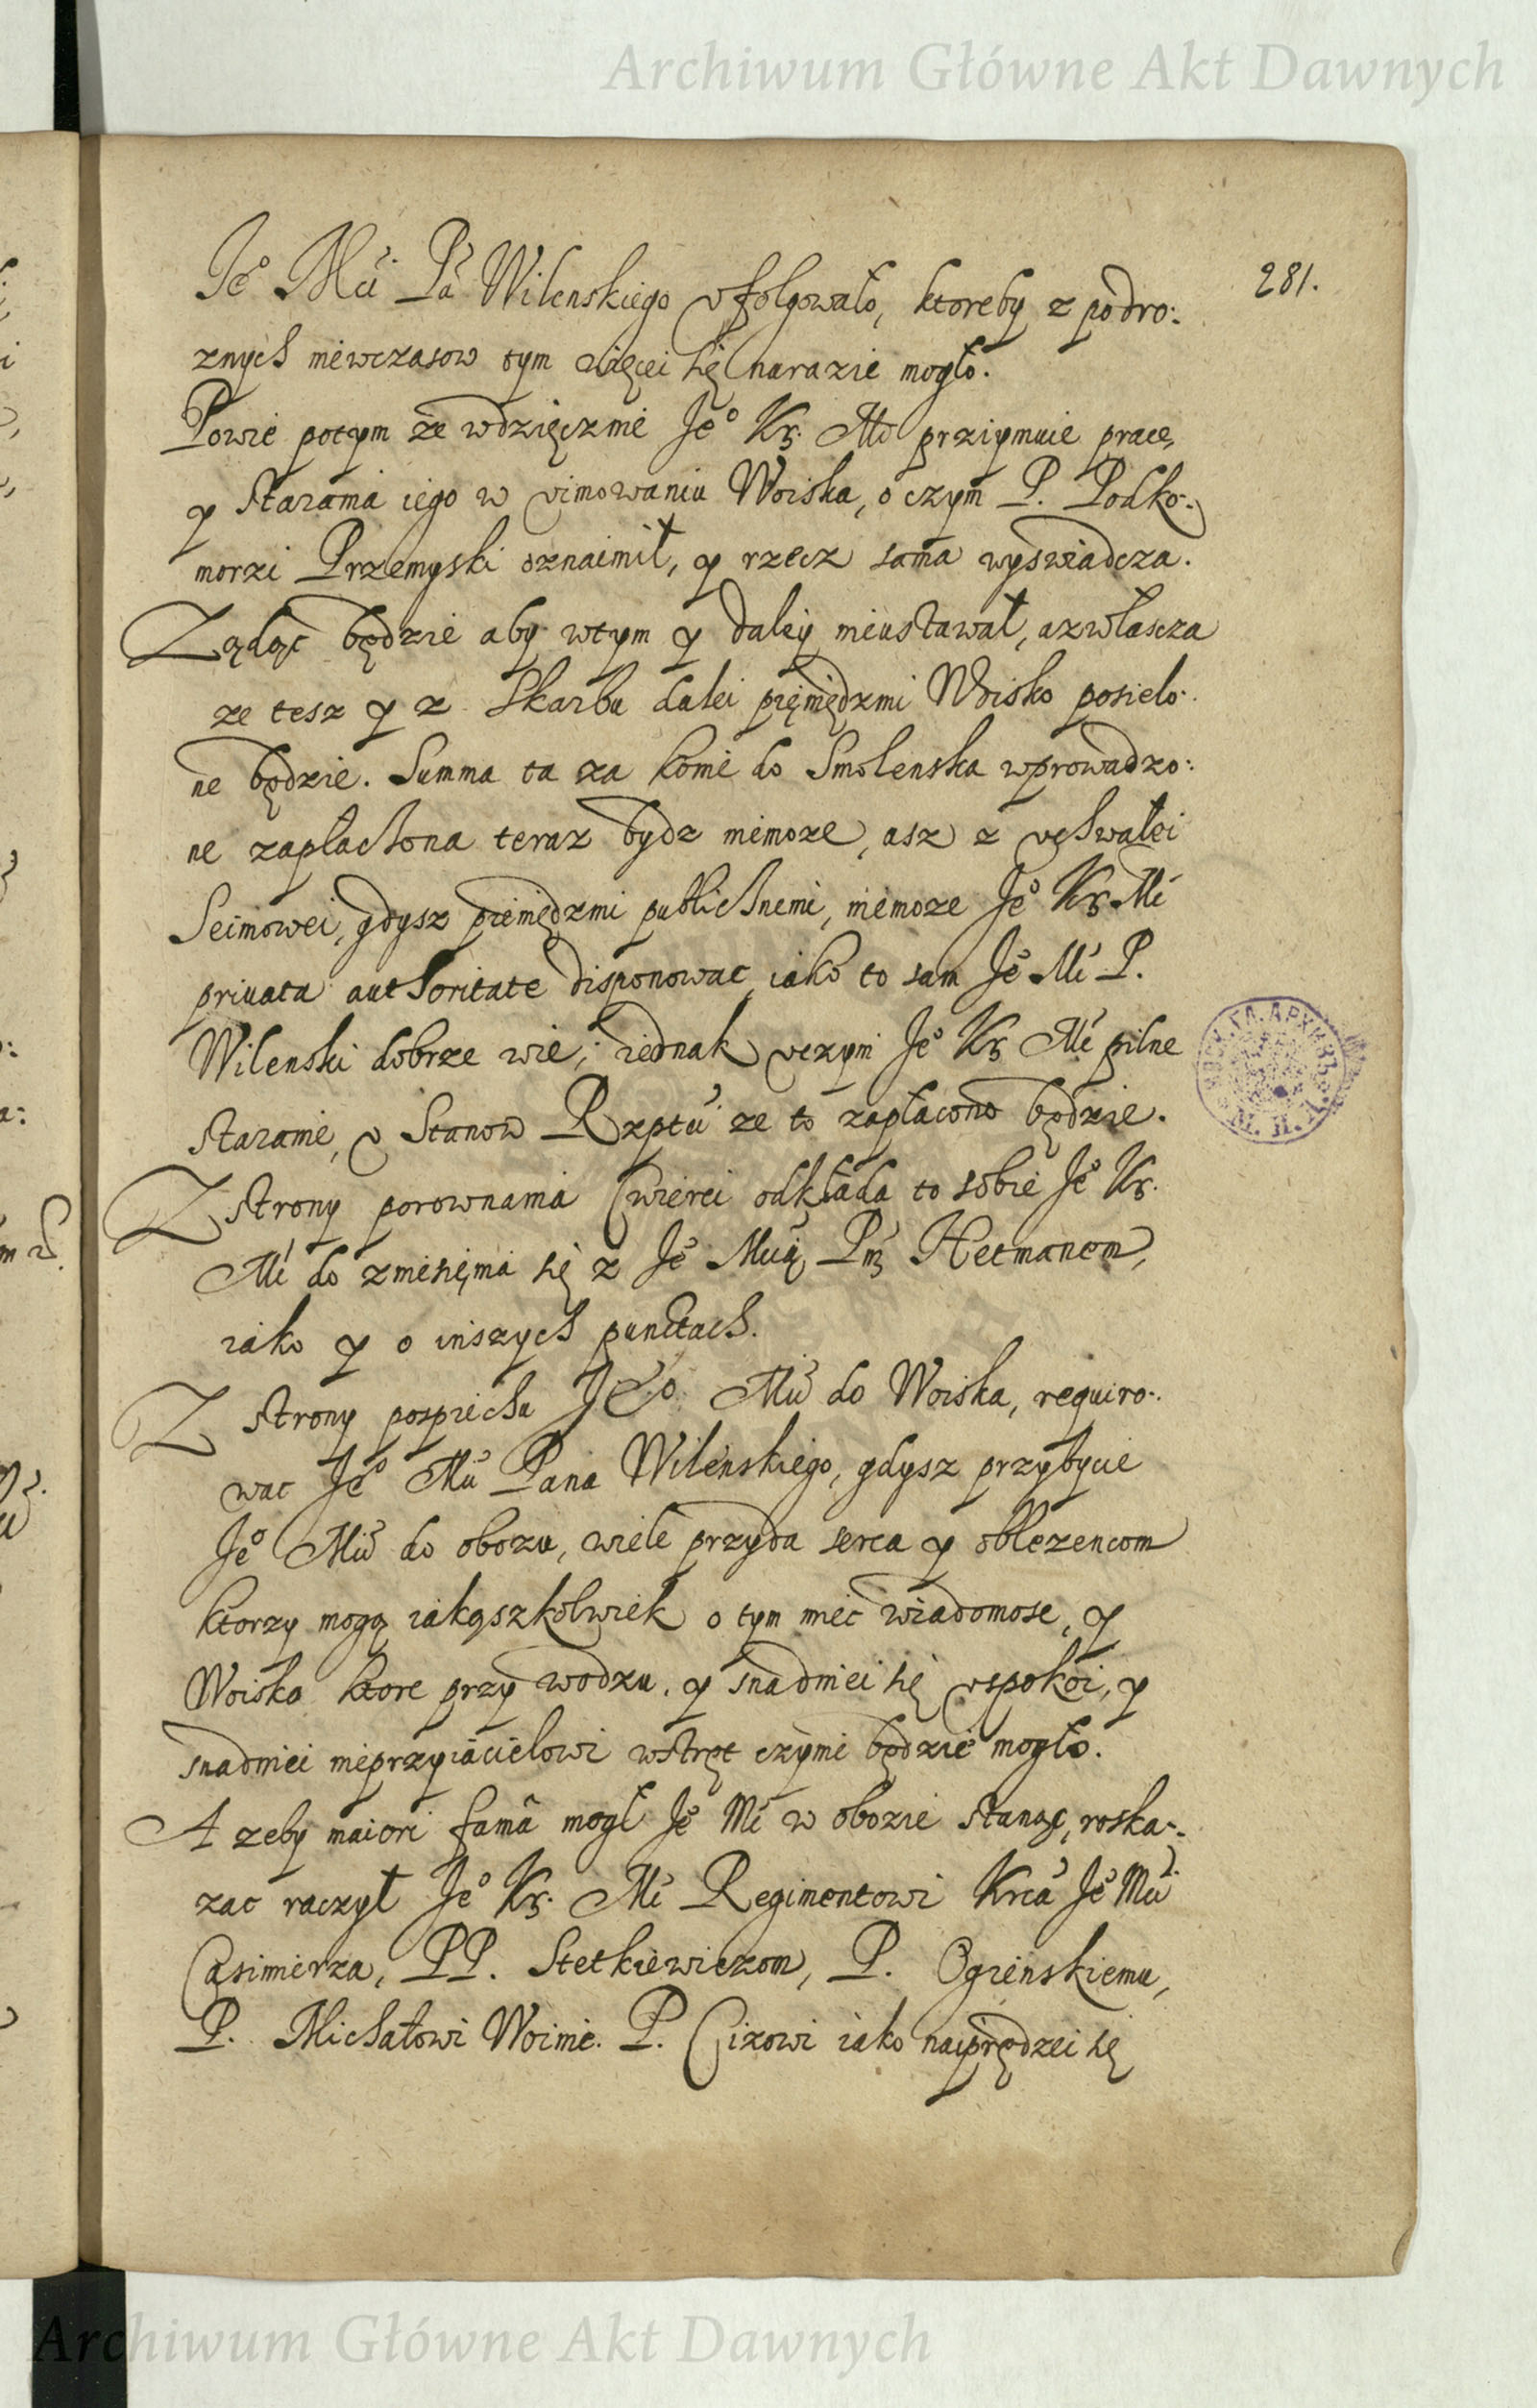 Archiwum Główne Akt Dawnych
281.
Jeo Mci Pa Wilenskiego vfolgowało, ktoreby z podro:
znych niewczasow tym więcei się narazic mogło.
Powie potym że wdzięcznie Jeo Kr. Mc prziymuie pracę,
y starania iego w vimowaniu Woiska, o czym P. Podko:
morzi Przemyski oznaimił, y rzecz sama wyswiadcza.
Ządąc będzie aby wtym y daley nieustawał, azwłascza
ze tesz y z Skarbu dalei pięniędzmi Woisko posielo:
ne będzie. Summa ta za konie do Smolenska wprowadzo:
ne zapłachona teraz bydz niemoze, asz z vchwałei
Seimowei, gdysz pieniędzmi publichnemi, niemoze Jeo Kr. Mc
priuata authoritate disponowac, iako to sam Jeo Mc P.
Wilenski dobrze wie; iednak vczyni Jeo Kr Mc pilne
staranie, v Stanow Rzptei ze to zapłacono będzie.
Z strony porownania Cwierci odkłada to sobie Jeo Kr.
Mc do zniesięnia się z Jeo Mcią Pm Hetmanem,
iako y o inszych punctach.
Z strony pospiechu JEo Mci do Woiska, requiro:
wac Jeo Mci Pana Wilenskiego, gdysz przybycie
Jeo Mci do obozu, wiele przyda serca y oblezencom
ktorzy mogą iakąszkolwiek o tym miec wiadomosc, y
Woisko ktore przy wodzu, y snadniei się vspokoi, y
snadniei nieprzyiacielowi wstręt czynic będzie mogło.
A zeby maiori famâ mogł Jeo Mc w obozie stanąc, roska:
zac raczył Jeo Kr. Mc Regimentowi Krca Jeo Mci
Casimierza, PP. Stetkiewiczom, P. Ogienskiemu,
P. Michałowi Woinie. P. Cizowi iako naiprędzei się
Archiwum Główne Akt Dawnych